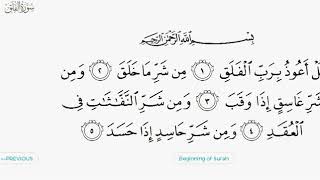 سورة الفلق
بِسْمِ ٱللَّهِ ٱلرَّحْمَٰنِ ٱلرَّحِيمِ
أَعُوذُ بِرَبِّ ٱلْفَلَقِ ١ مِن شَرِّ مَا خَلَقَ ٢ وَمِن
شَرِّ غَاسِقٍ إِذَا وَقَبَ ٣ وَمِن شَرِّ ٱلنَّفَّٰثَٰتِ فِى
ٱلْعُقَدِ ٤ وَمِن شَرِّ حَاسِدٍ إِذَا حَسَدَ ٥
PREVIOUS
Beginning of Surah